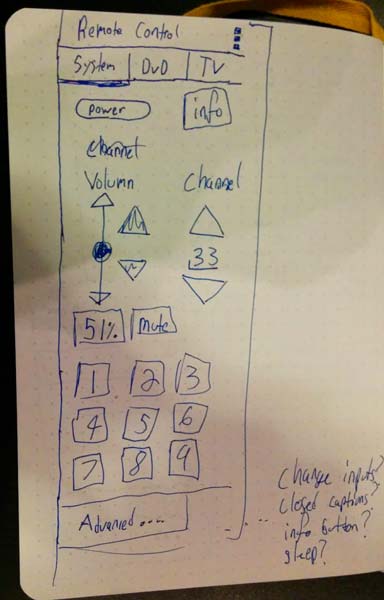 Remote Control
System DVD TV
power info
Channel
Volumn Channel
33
51% Mute
1 2 3
4 5 6
7 8 9
Advanced....
change inputs?
closed captions?
info button?
sleep?